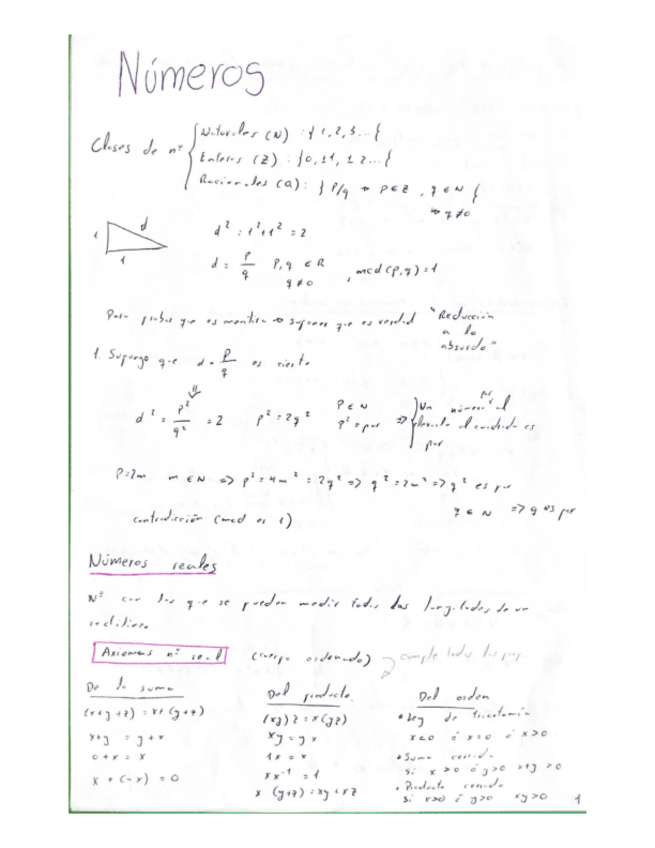 Números
Clases de nº
Naturales (N) : { 1, 2, 3... {
Enteros (Z) : } 0, ±1, ± 2... {
Racionales (Q) : } P/q → P ∈ Z , q ∈ N {
→ q ≠ 0
d
1
1
d² = 1² + 1² = 2
d = P/q P, q ∈ R , mcd (P, q) = 1
q ≠ 0
Para probar que es mentira → supones que es verdad "Reducción
a lo
absurdo"
1. Supongo que d = P/q es cierto
⇓
d² = P²/q² = 2 p² = 2q² P ∈ N
p² = par ⇒ Un número par al
elevarlo al cuadrado es
par
P = 2m m ∈ N => p² = 4m² = 2q² => q² = 2m² => q² es par
q ∈ N => q es par
contradicción (mcd es 1)
Números reales
Nº con los que se pueden medir todas las longitudes de un
rectilíneo
Axiomas nº real (cuerpo ordenado) cumple todas las prop
De la suma
(x+y+z) = x+(y+z)
x+y = y+x
0+x = x
x + (-x) = 0
Del producto
(xy) z = x (yz)
xy = yx
1x = x
xx⁻¹ = 1
x (y+z) = xy + xz
Del orden
• Ley de tricotomía
x<0 ó x=0 ó x>0
• Suma cerrada
si x>0 ó y>0 x+y >0
• Producto cerrado
si x>0 ó y>0 xy>0
1